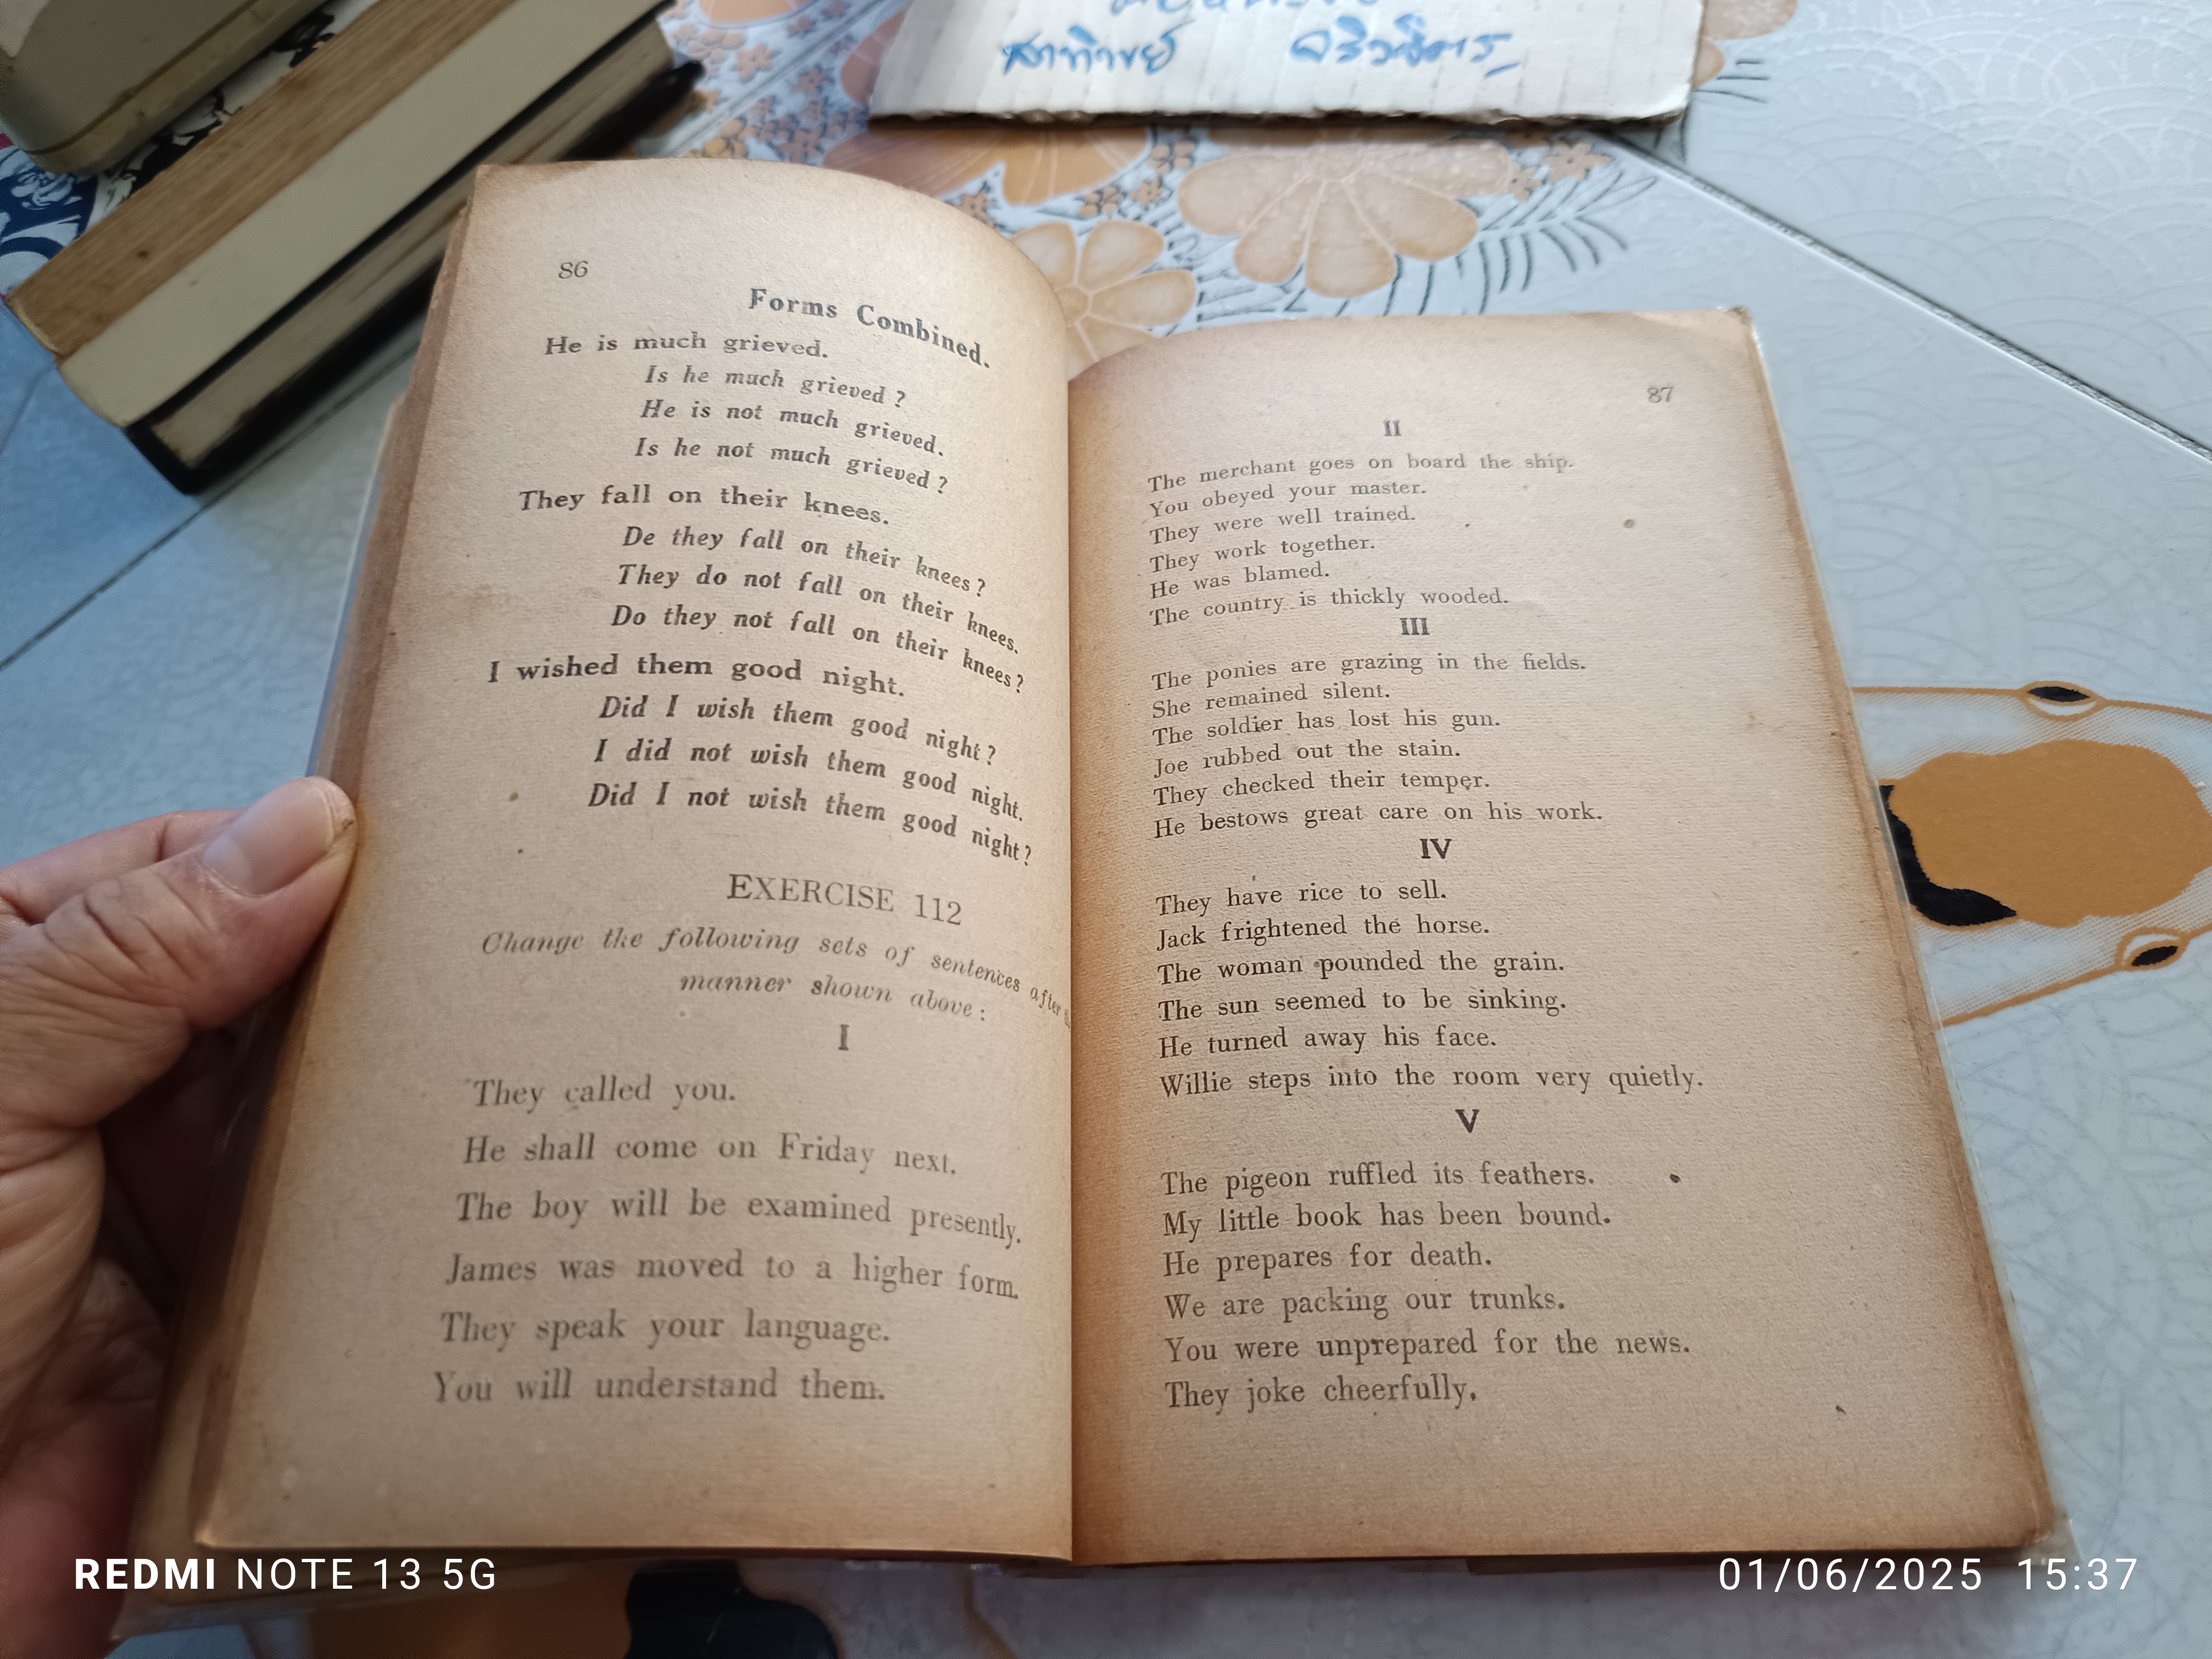 86
Forms Combined.
He is much grieved.
Is he much grieved ?
He is not much grieved.
Is he not much grieved ?
They fall on their knees.
De they fall on their knees ?
They do not fall on their knees.
Do they not fall on their knees ?
I wished them good night.
Did I wish them good night ?
I did not wish them good night.
Did I not wish them good night ?
EXERCISE 112
Change the following sets of sentences after
manner shown above :
I
They called you.
He shall come on Friday next.
The boy will be examined presently.
James was moved to a higher form.
They speak your language.
You will understand them.
87
II
The merchant goes on board the ship.
You obeyed your master.
They were well trained.
They work together.
He was blamed.
The country is thickly wooded.
III
The ponies are grazing in the fields.
She remained silent.
The soldier has lost his gun.
Joe rubbed out the stain.
They checked their temper.
He bestows great care on his work.
IV
They have rice to sell.
Jack frightened the horse.
The woman pounded the grain.
The sun seemed to be sinking.
He turned away his face.
Willie steps into the room very quietly.
V
The pigeon ruffled its feathers.
My little book has been bound.
He prepares for death.
We are packing our trunks.
You were unprepared for the news.
They joke cheerfully.
REDMI NOTE 13 5G
01/06/2025 15:37